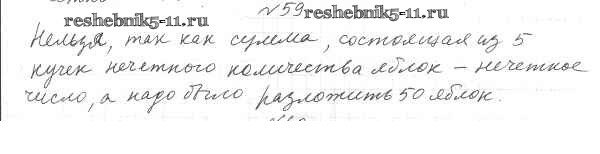 №59 reshebnik5-11.ru
reshebnik5-11.ru
Нельзя, так как сумма, состоящая из 5
кучек нечетного количества яблок – нечетное
число, а надо было разложить 50 яблок.